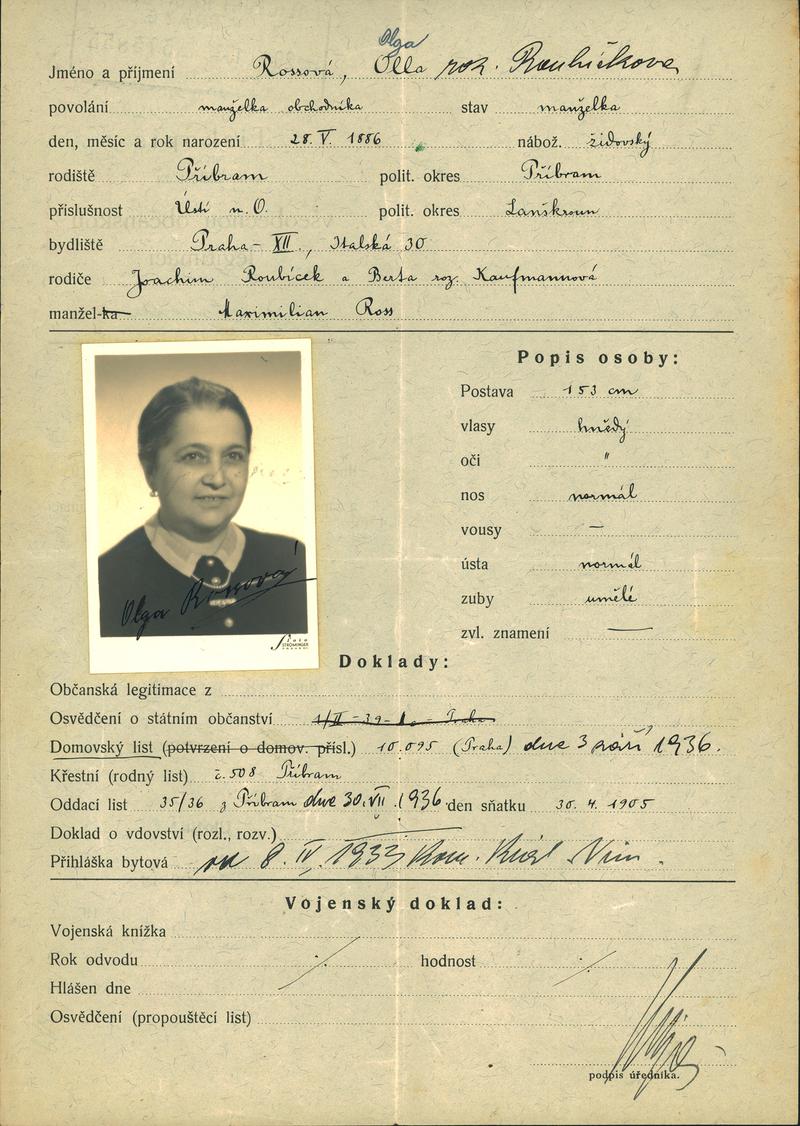 Olga
Jméno a příjmení Rossová, Olla roz. Roubíčkova
povolání manželka obchodníka stav manželka
den, měsíc a rok narození 28. V. 1886 nábož. židovský
rodiště Příbram polit. okres Příbram
příslušnost Ústí n. O. polit. okres Lanškroun
bydliště Praha - XII., Italská 30
rodiče Joachim Roubícek a Berta roz. Kaufmannová
manžel-ka Maximilian Ross
Popis osoby:
Postava 153 cm
vlasy hnědý
oči "
nos normál
vousy —
ústa normál
zuby umělé
zvl. znamení —
Olga Rossová
Foto
STROMINGER
Doklady:
Občanská legitimace z
Osvědčení o státním občanství
Domovský list (potvrzení o domov. přísl.) 10.095 (Praha) dne 3 září 1936.
Křestní (rodný list) č. 508 Příbram
Oddací list 35/36 z Příbram dne 30. VII. 1936 den sňatku 30. 4. 1905
Doklad o vdovství (rozl., rozv.)
Přihláška bytová od 8. IV. 1933 Kom.
Vojenský doklad:
Vojenská knížka
Rok odvodu hodnost
Hlášen dne
Osvědčení (propouštěcí list)
podpis úředníka.